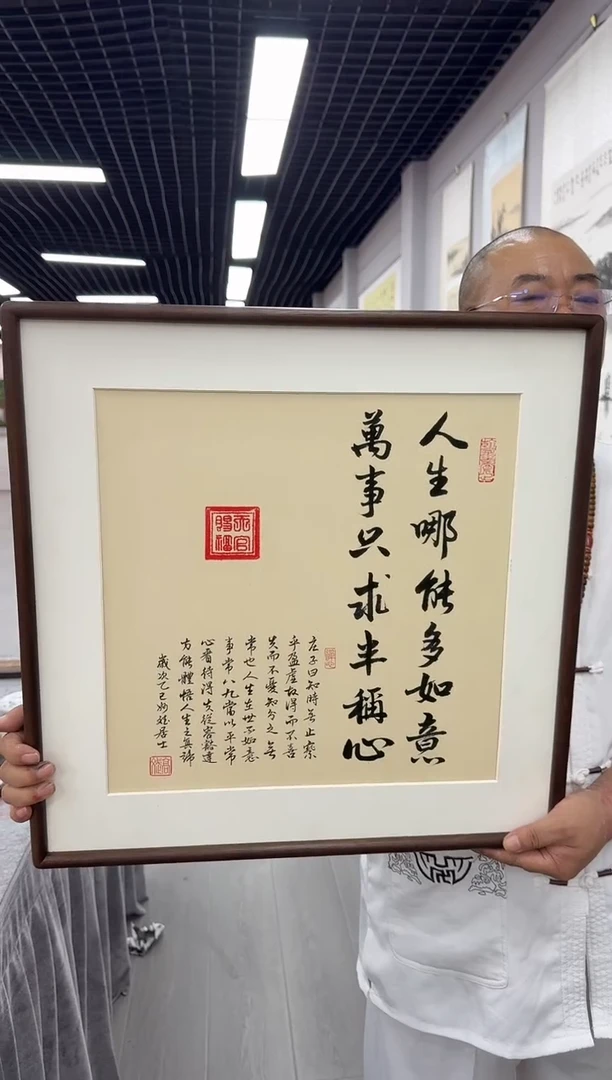 人生哪能多如意
萬事只求半稱心
庄子曰知時无止察
乎盈虛故得而不喜
失而不憂知分之無
常也人生在世不如意
事常八九當以平常
心看待得失從容豁達
方能體悟人生之真諦
歲次乙巳居士
天官賜福